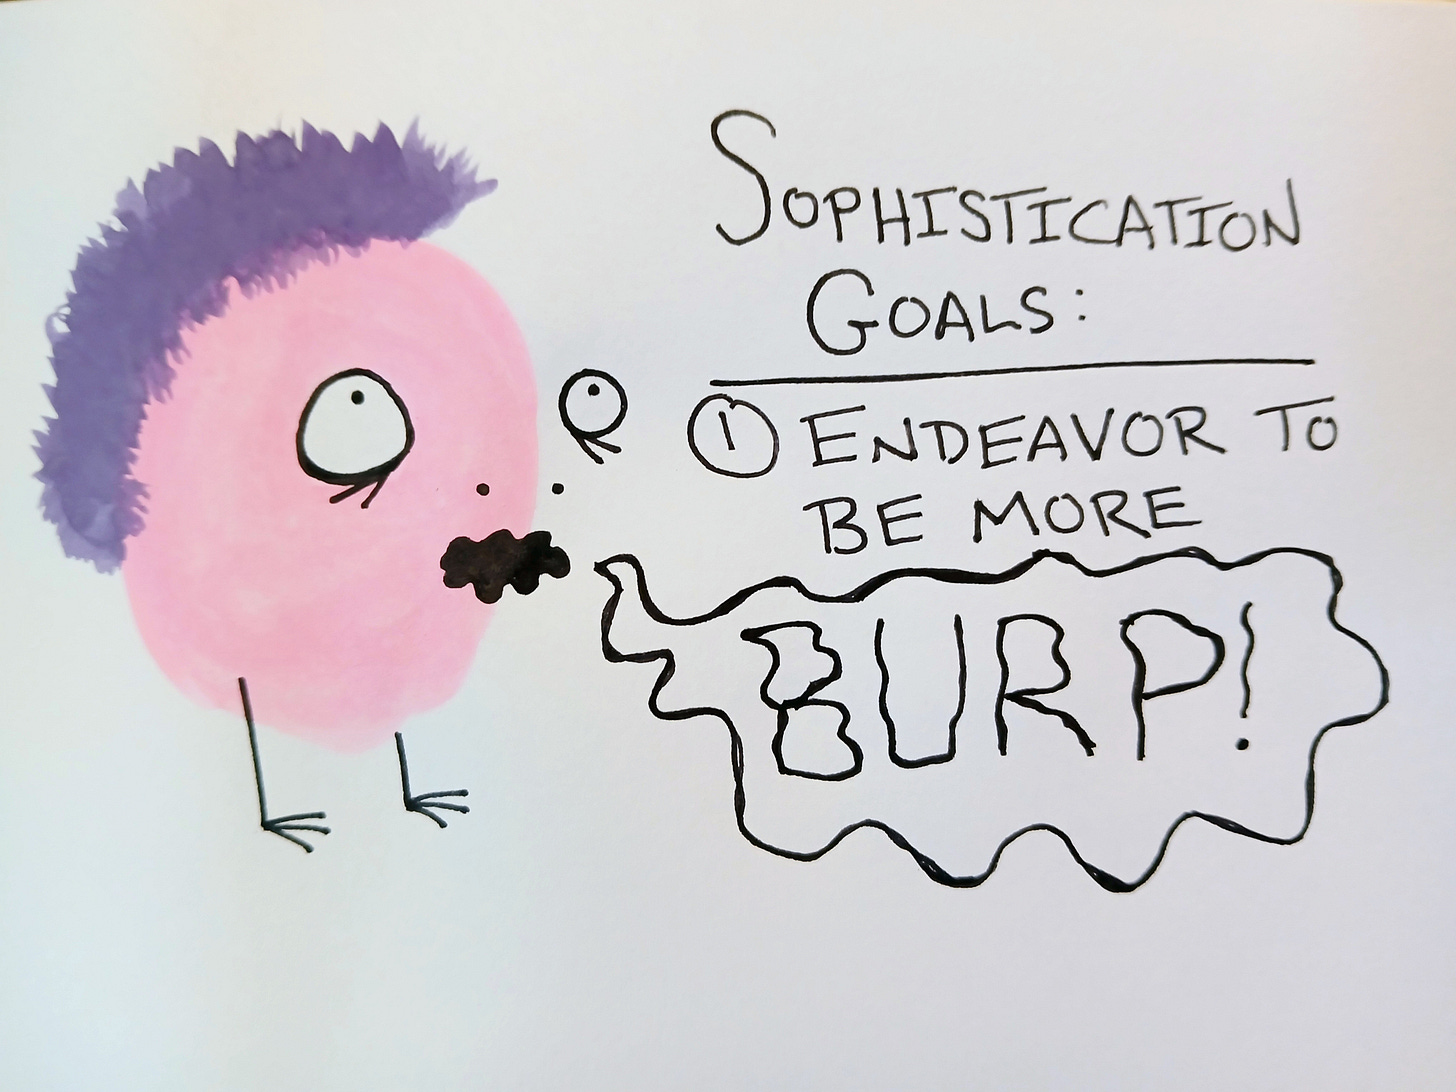 SOPHISTICATION
GOALS:
1 ENDEAVOR TO
BE MORE
BURP!